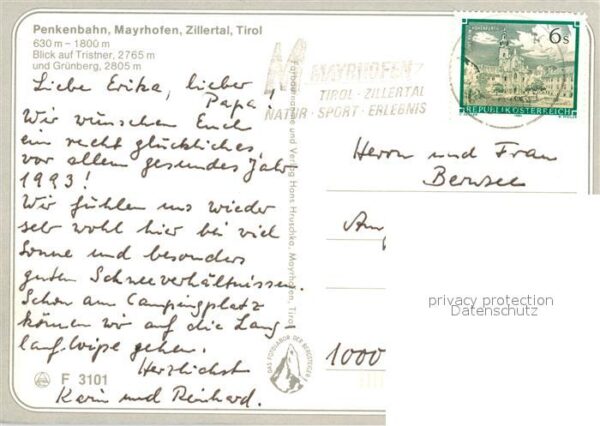 Penkenbahn, Mayrhofen, Zillertal, Tirol
630 m – 1800 m
Blick auf Tristner, 2765 m
und Grünberg, 2805 m
Liebe Erika, lieber
Papa,
Wir wünschen Euch
ein recht glückliches
vor allem gesundes Jahr
1993!
Wir fühlen uns wieder
sehr wohl hier bei viel
Sonne und besonders
guten Schneeverhältnissen.
Schon am Campingplatz
können wir auf die Lang
laufloipe gehen.
Herzlichst
Karin und Reinhard.
F 3101
Verlag Hans Hruschka, Mayrhofen, Tirol
DAS FOTOLABOR DER BERGSTEIGER
MAYRHOFEN
TIROL · ZILLERTAL
NATUR · SPORT · ERLEBNIS
6 S
REPUBLIK ÖSTERREICH
Herrn und Frau
1000
privacy protection
Datenschutz